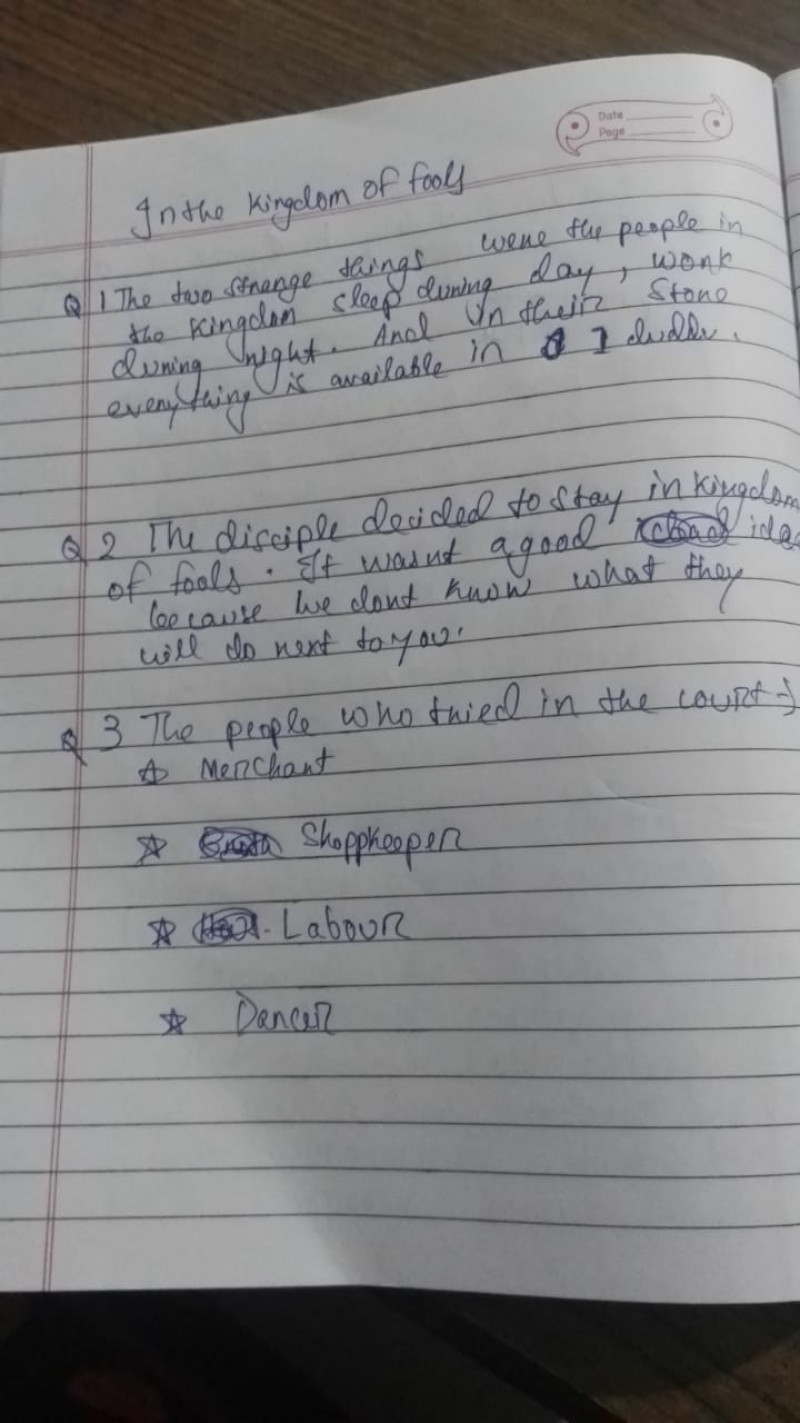 Date
Page
In the Kingdom of fools
Q 1 The two strange things were the people in
the Kingdom sleep during day, work
during night. And in their Store
everything is available in 1 duddu.
Q 2 The disciple decided to stay in Kingdom
of fools. It wasnt a good idea
because we dont know what they
will do next to you.
Q 3 The people who tried in the court →
☆ Merchant
☆ Shoppkeeper
☆ Labour
☆ Dancer